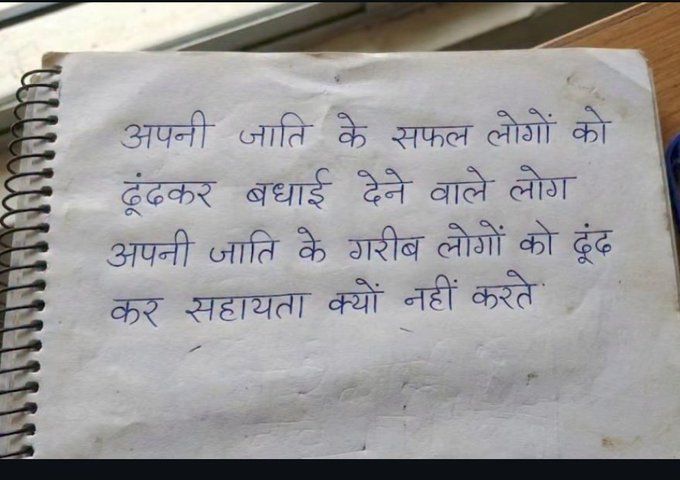 अपनी जाति के सफल लोगों को
ढूंढकर बधाई देने वाले लोग
अपनी जाति के गरीब लोगों को ढूंढ
कर सहायता क्यों नहीं करते